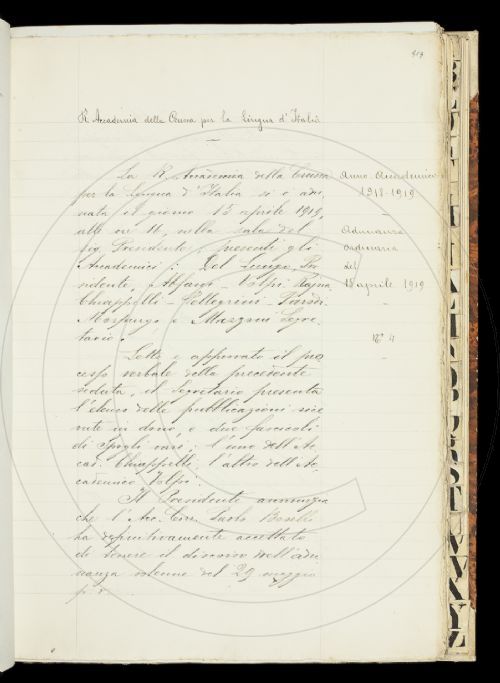 R. Accademia della Crusca per la Lingua d'Italia
La R. Accademia della Crusca
per la Lingua d'Italia si è adu-
nata il giorno 15 aprile 1919,
alle ore 16, nella sala del
sig. Presidente; presenti gli
Accademici: Del Lungo, Pre
sidente, Alfani - Volpi - Rajna
Chiappelli - Pellegrini - Parodi
Morpurgo e Mazzoni Segre-
tario.
Letto e approvato il pro
cesso verbale della precedente
seduta, il Segretario presenta
l'elenco delle pubblicazioni rice
vute in dono e due fascicoli
di Spogli vari, l'uno dell'Ac-
cad. Chiappelli, l'altro dell'Ac
cademico Volpi.
Il Presidente annunzia
che l'Acc. Corr. Paolo Boselli
ha definitivamente accettato
di tenere il discorso nell'adu
nanza solenne del 29 maggio
p. v.
Anno Accademico
1918-1919
Adunanza
ordinaria
del
15 aprile 1919
N° 4